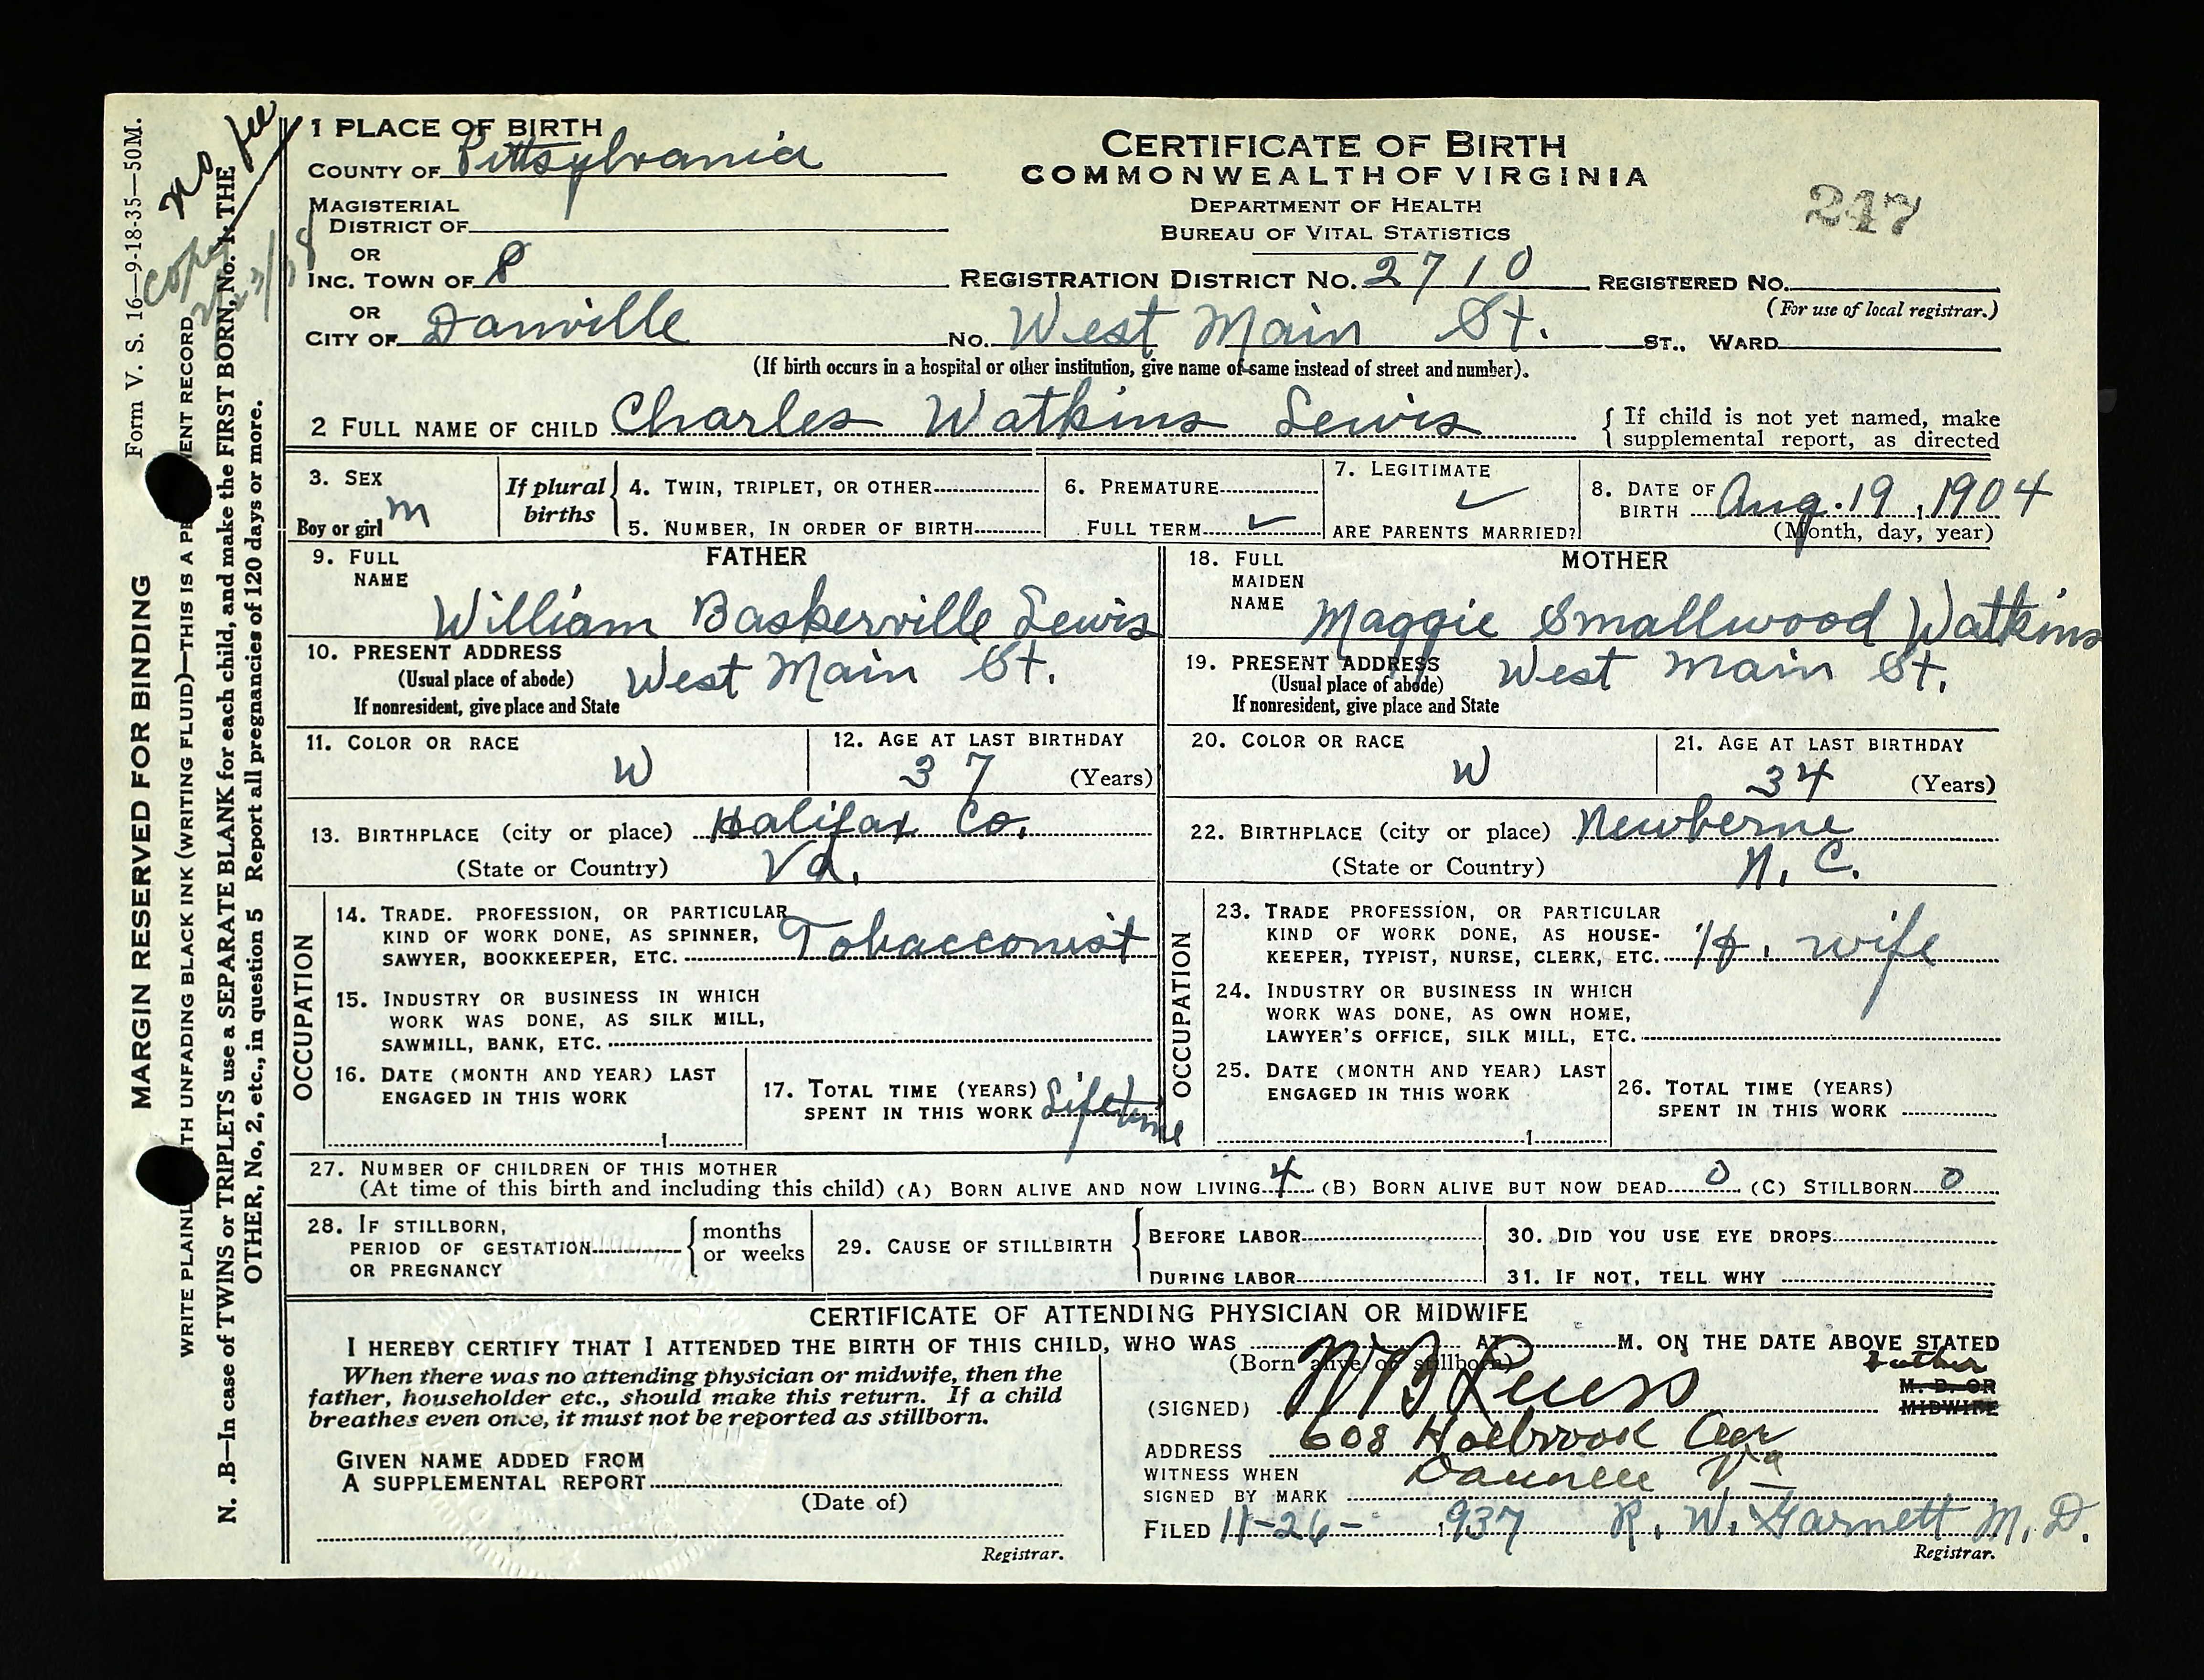 1 PLACE OF BIRTH
COUNTY OF Pittsylvania
MAGISTERIAL
DISTRICT OF
OR
INC. TOWN OF P
OR
CITY OF Danville
CERTIFICATE OF BIRTH
COMMONWEALTH OF VIRGINIA
DEPARTMENT OF HEALTH
BUREAU OF VITAL STATISTICS
247
REGISTRATION DISTRICT NO. 2710 REGISTERED NO.
(For use of local registrar.)
NO. West Main St. ST., WARD
(If birth occurs in a hospital or other institution, give name of same instead of street and number).
2 FULL NAME OF CHILD Charles Watkins Lewis
If child is not yet named, make
supplemental report, as directed
3. SEX
Boy or girl m
If plural
births
4. TWIN, TRIPLET, OR OTHER
5. NUMBER, IN ORDER OF BIRTH
6. PREMATURE
FULL TERM ✓
7. LEGITIMATE
✓
ARE PARENTS MARRIED?
8. DATE OF
BIRTH Aug. 19, 1904
(Month, day, year)
FATHER
9. FULL
NAME
William Baskerville Lewis
10. PRESENT ADDRESS
(Usual place of abode) West Main St.
If nonresident, give place and State
11. COLOR OR RACE
W
12. AGE AT LAST BIRTHDAY
37 (Years)
13. BIRTHPLACE (city or place) Halifax Co.
(State or Country) Va.
OCCUPATION
14. TRADE. PROFESSION, OR PARTICULAR
KIND OF WORK DONE, AS SPINNER,
SAWYER, BOOKKEEPER, ETC. Tobacconist
15. INDUSTRY OR BUSINESS IN WHICH
WORK WAS DONE, AS SILK MILL,
SAWMILL, BANK, ETC.
16. DATE (MONTH AND YEAR) LAST
ENGAGED IN THIS WORK
17. TOTAL TIME (YEARS)
SPENT IN THIS WORK Lifetime
MOTHER
18. FULL
MAIDEN
NAME
Maggie Smallwood Watkins
19. PRESENT ADDRESS
(Usual place of abode) West Main St.
If nonresident, give place and State
20. COLOR OR RACE
W
21. AGE AT LAST BIRTHDAY
34 (Years)
22. BIRTHPLACE (city or place) Newberne
(State or Country) N. C.
OCCUPATION
23. TRADE PROFESSION, OR PARTICULAR
KIND OF WORK DONE, AS HOUSE-
KEEPER, TYPIST, NURSE, CLERK, ETC. H. wife
24. INDUSTRY OR BUSINESS IN WHICH
WORK WAS DONE, AS OWN HOME,
LAWYER'S OFFICE, SILK MILL, ETC.
25. DATE (MONTH AND YEAR) LAST
ENGAGED IN THIS WORK
26. TOTAL TIME (YEARS)
SPENT IN THIS WORK
27. NUMBER OF CHILDREN OF THIS MOTHER
(At time of this birth and including this child) (A) BORN ALIVE AND NOW LIVING 4 (B) BORN ALIVE BUT NOW DEAD 0 (C) STILLBORN 0
28. IF STILLBORN,
PERIOD OF GESTATION
OR PREGNANCY
months
or weeks
29. CAUSE OF STILLBIRTH
BEFORE LABOR
DURING LABOR
30. DID YOU USE EYE DROPS
31. IF NOT, TELL WHY
CERTIFICATE OF ATTENDING PHYSICIAN OR MIDWIFE
I HEREBY CERTIFY THAT I ATTENDED THE BIRTH OF THIS CHILD, WHO WAS AT M. ON THE DATE ABOVE STATED
(Born alive or stillborn)
When there was no attending physician or midwife, then the
father, householder etc., should make this return. If a child
breathes even once, it must not be reported as stillborn.
GIVEN NAME ADDED FROM
A SUPPLEMENTAL REPORT
(Date of)
Registrar.
Father
M. D. OR
MIDWIFE
(SIGNED) WB Lewis
ADDRESS 608 Holbrook Ave
WITNESS WHEN
SIGNED BY MARK
Danville Va
FILED 11-26- 1937 R. W. Garnett M. D.
Registrar.
Form V. S. 16—9-18-35—50M.
no fee
copy
MARGIN RESERVED FOR BINDING
WRITE PLAINLY WITH UNFADING BLACK INK (WRITING FLUID)—THIS IS A PERMANENT RECORD
N. .B—In case of TWINS or TRIPLETS use a SEPARATE BLANK for each child, and make the FIRST BORN, No. 1. THE
OTHER, No, 2, etc., in question 5 Report all pregnancies of 120 days or more.